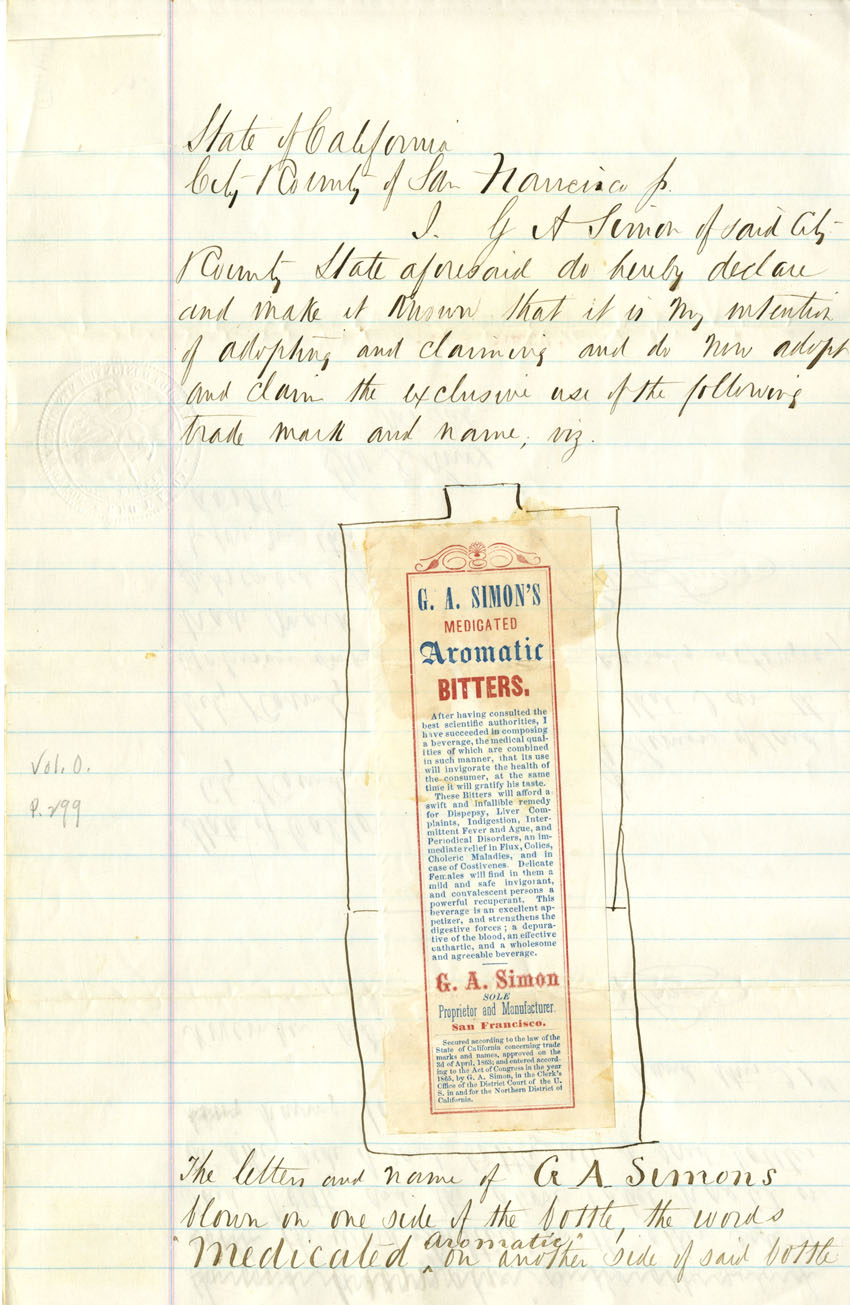 State of California
City & County of San Francisco ss.
I. G A Simon of said City
& County State aforesaid do hereby declare
and make it known that it is my intention
of adopting and claiming and do now adopt
and claim the exclusive use of the following
trade mark and name, viz.
G. A. SIMON'S
MEDICATED
Aromatic
BITTERS.
After having consulted the
best scientific authorities, I
have succeeded in composing
a beverage, the medical qual-
ities of which are combined
in such manner, that its use
will invigorate the health of
the consumer, at the same
time it will gratify his taste.
These Bitters will afford a
swift and infallible remedy
for Dispepsy, Liver Com-
plaints, Indigestion, Inter-
mittent Fever and Ague, and
Periodical Disorders, an im-
mediate relief in Flux, Colics,
Choleric Maladies, and in
case of Costivenes. Delicate
Females will find in them a
mild and safe invigorant,
and convalescent persons a
powerful recuperant. This
beverage is an excellent ap-
petizer, and strengthens the
digestive forces; a depura-
tive of the blood, an effective
cathartic, and a wholesome
and agreeable beverage.
G. A. Simon
SOLE
Proprietor and Manufacturer.
San Francisco.
Secured according to the law of the
State of California concerning trade
marks and names, approved on the
3d of April, 1863; and entered accord-
ing to the Act of Congress in the year
1865, by G. A. Simon, in the Clerk's
Office of the District Court of the U.
S. in and for the Northern District of
California.
Vol. O.
P. 299
The letters and name of G A Simons
blown on one side of the bottle, the words
"Medicated aromatic" on another side of said bottle